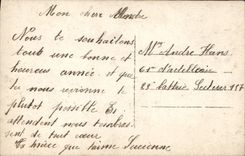 Mon cher André
Nous te souhaitons
tout une bonne et
heureuse année. et que
tu nous revienne le
plutot possible En
attendent nous t'embras
sent de tout cœur
Ta nièce que t'aime Lucienne.
Mr André Hans
61e d'artillerie
23e Batterie Secteur 157